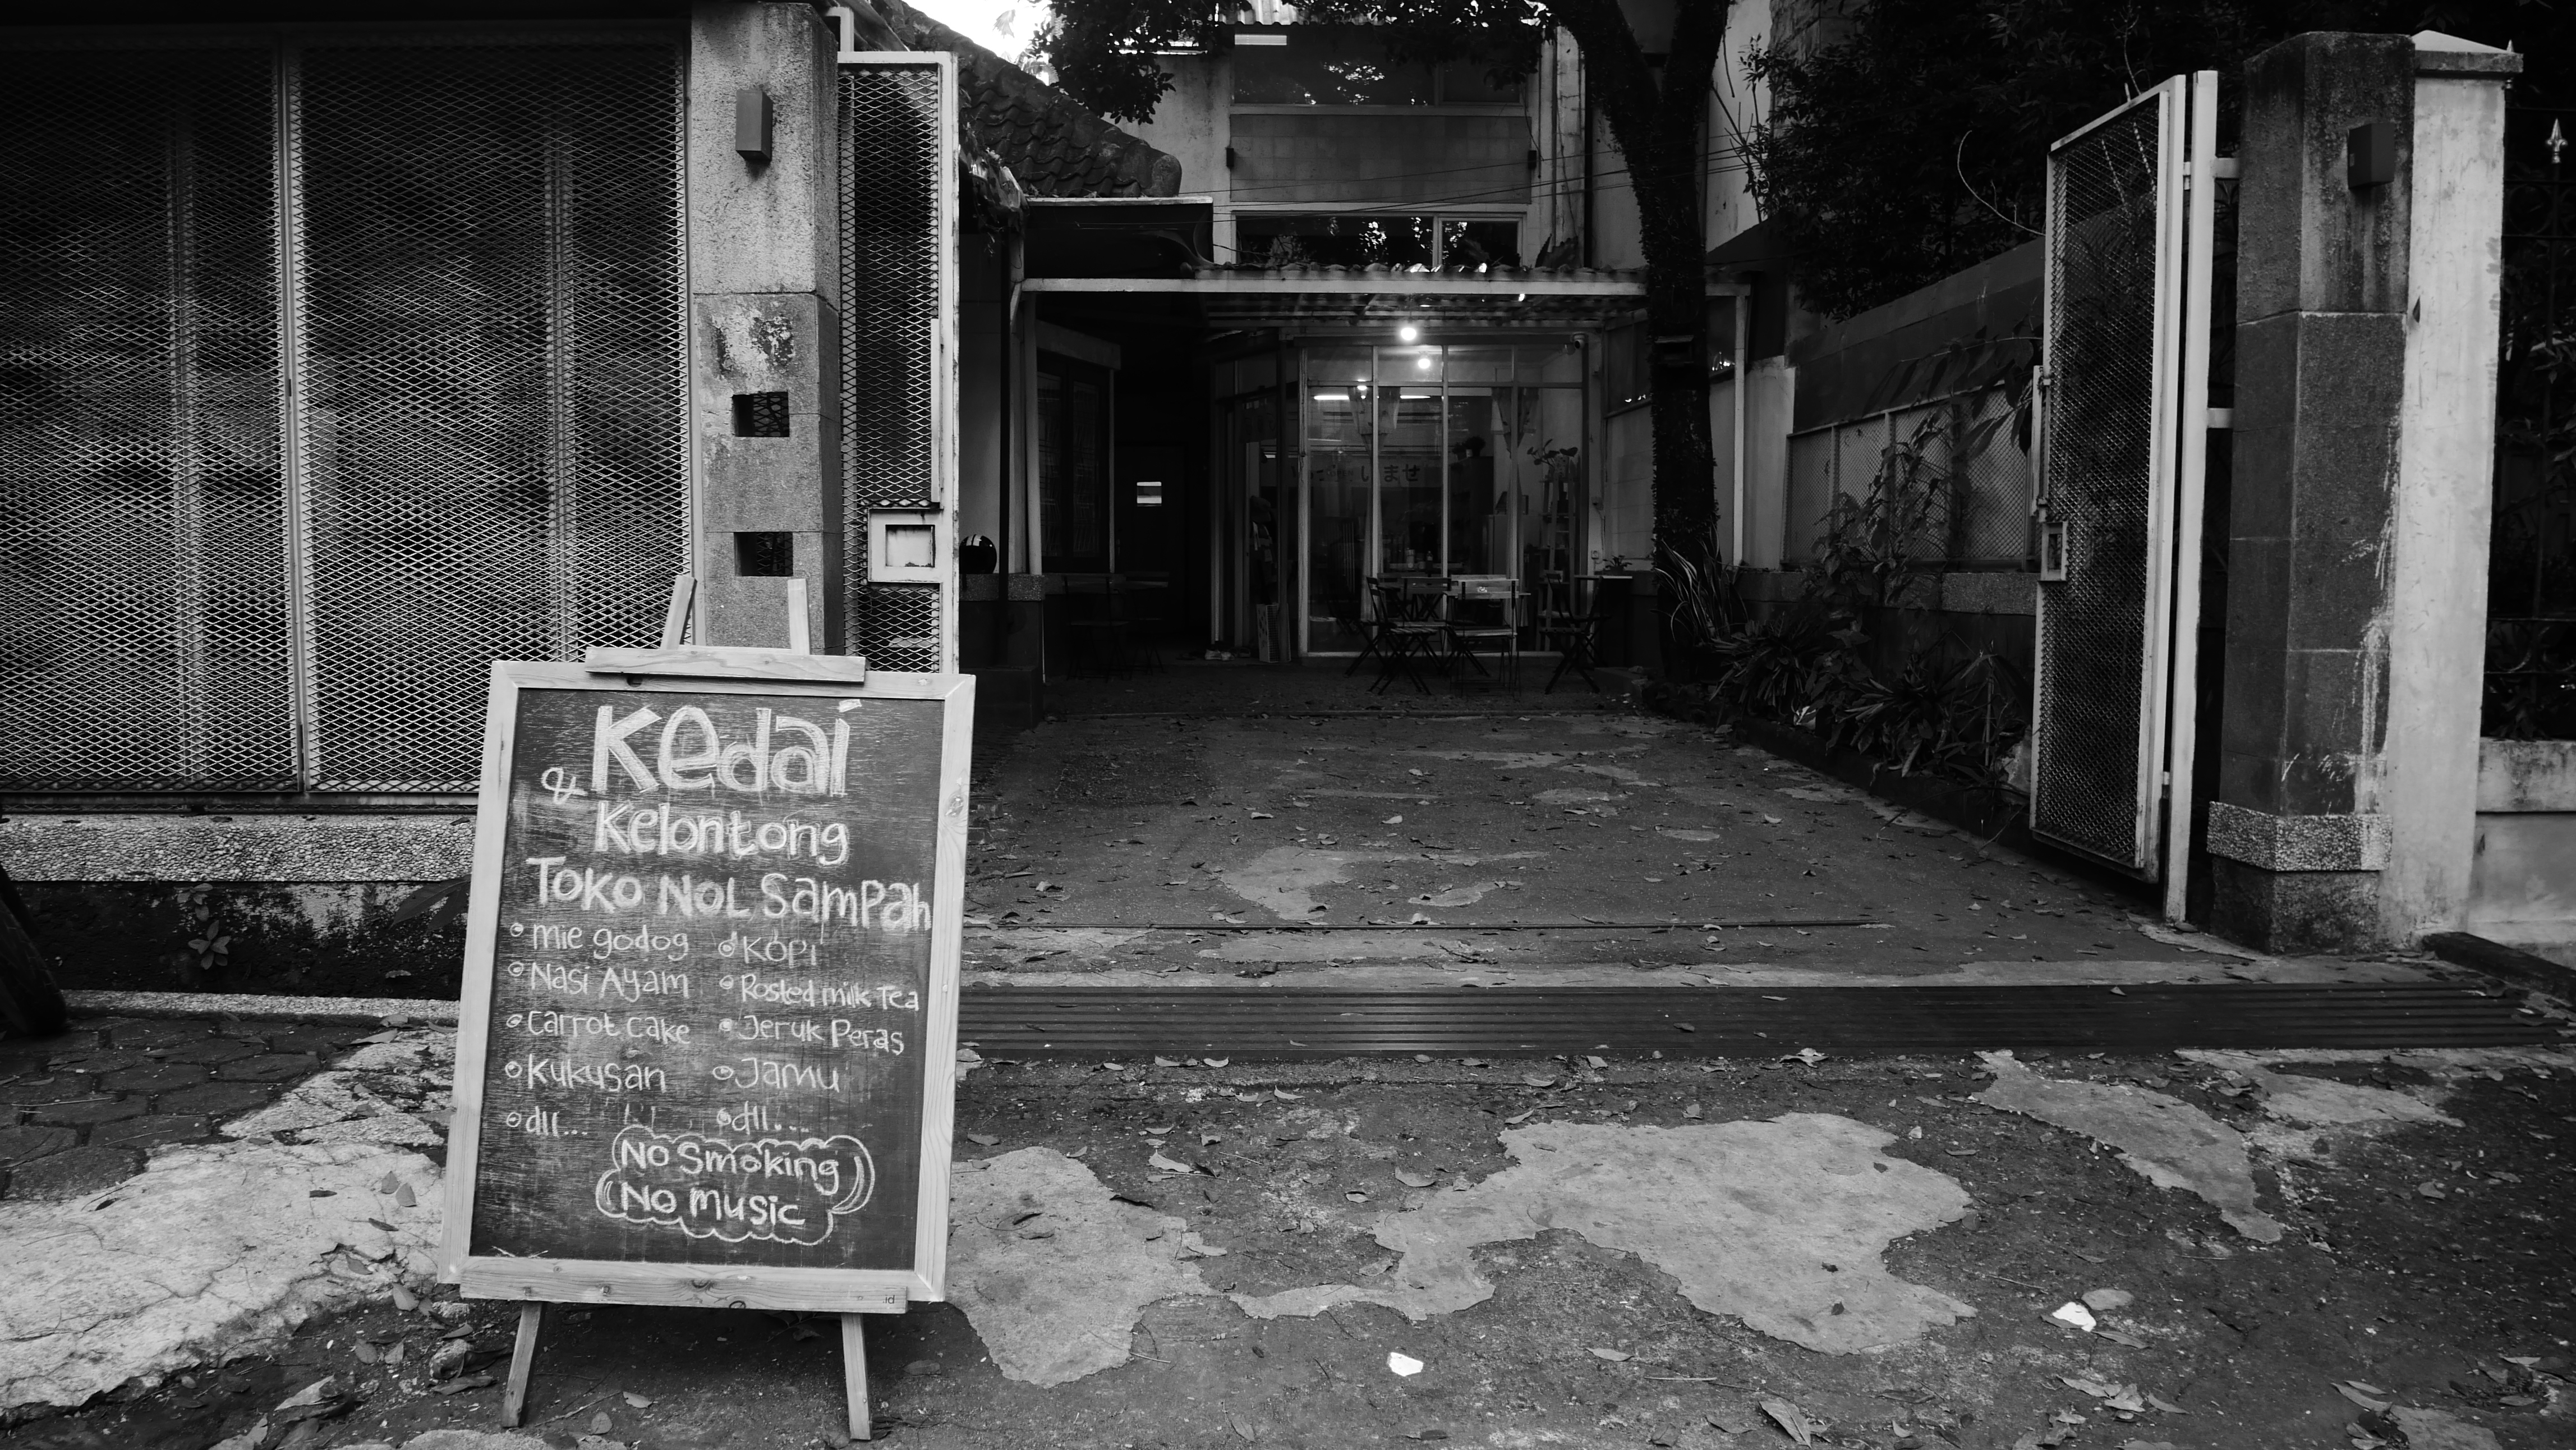 Kedai
& Kelontong
Toko Nol Sampah
mie godog
Nasi Ayam
Carrot cake
Kukusan
dll...
Kopi
Rosted milk Tea
Jeruk Peras
Jamu
dll...
No Smoking
No music
.id
いませ